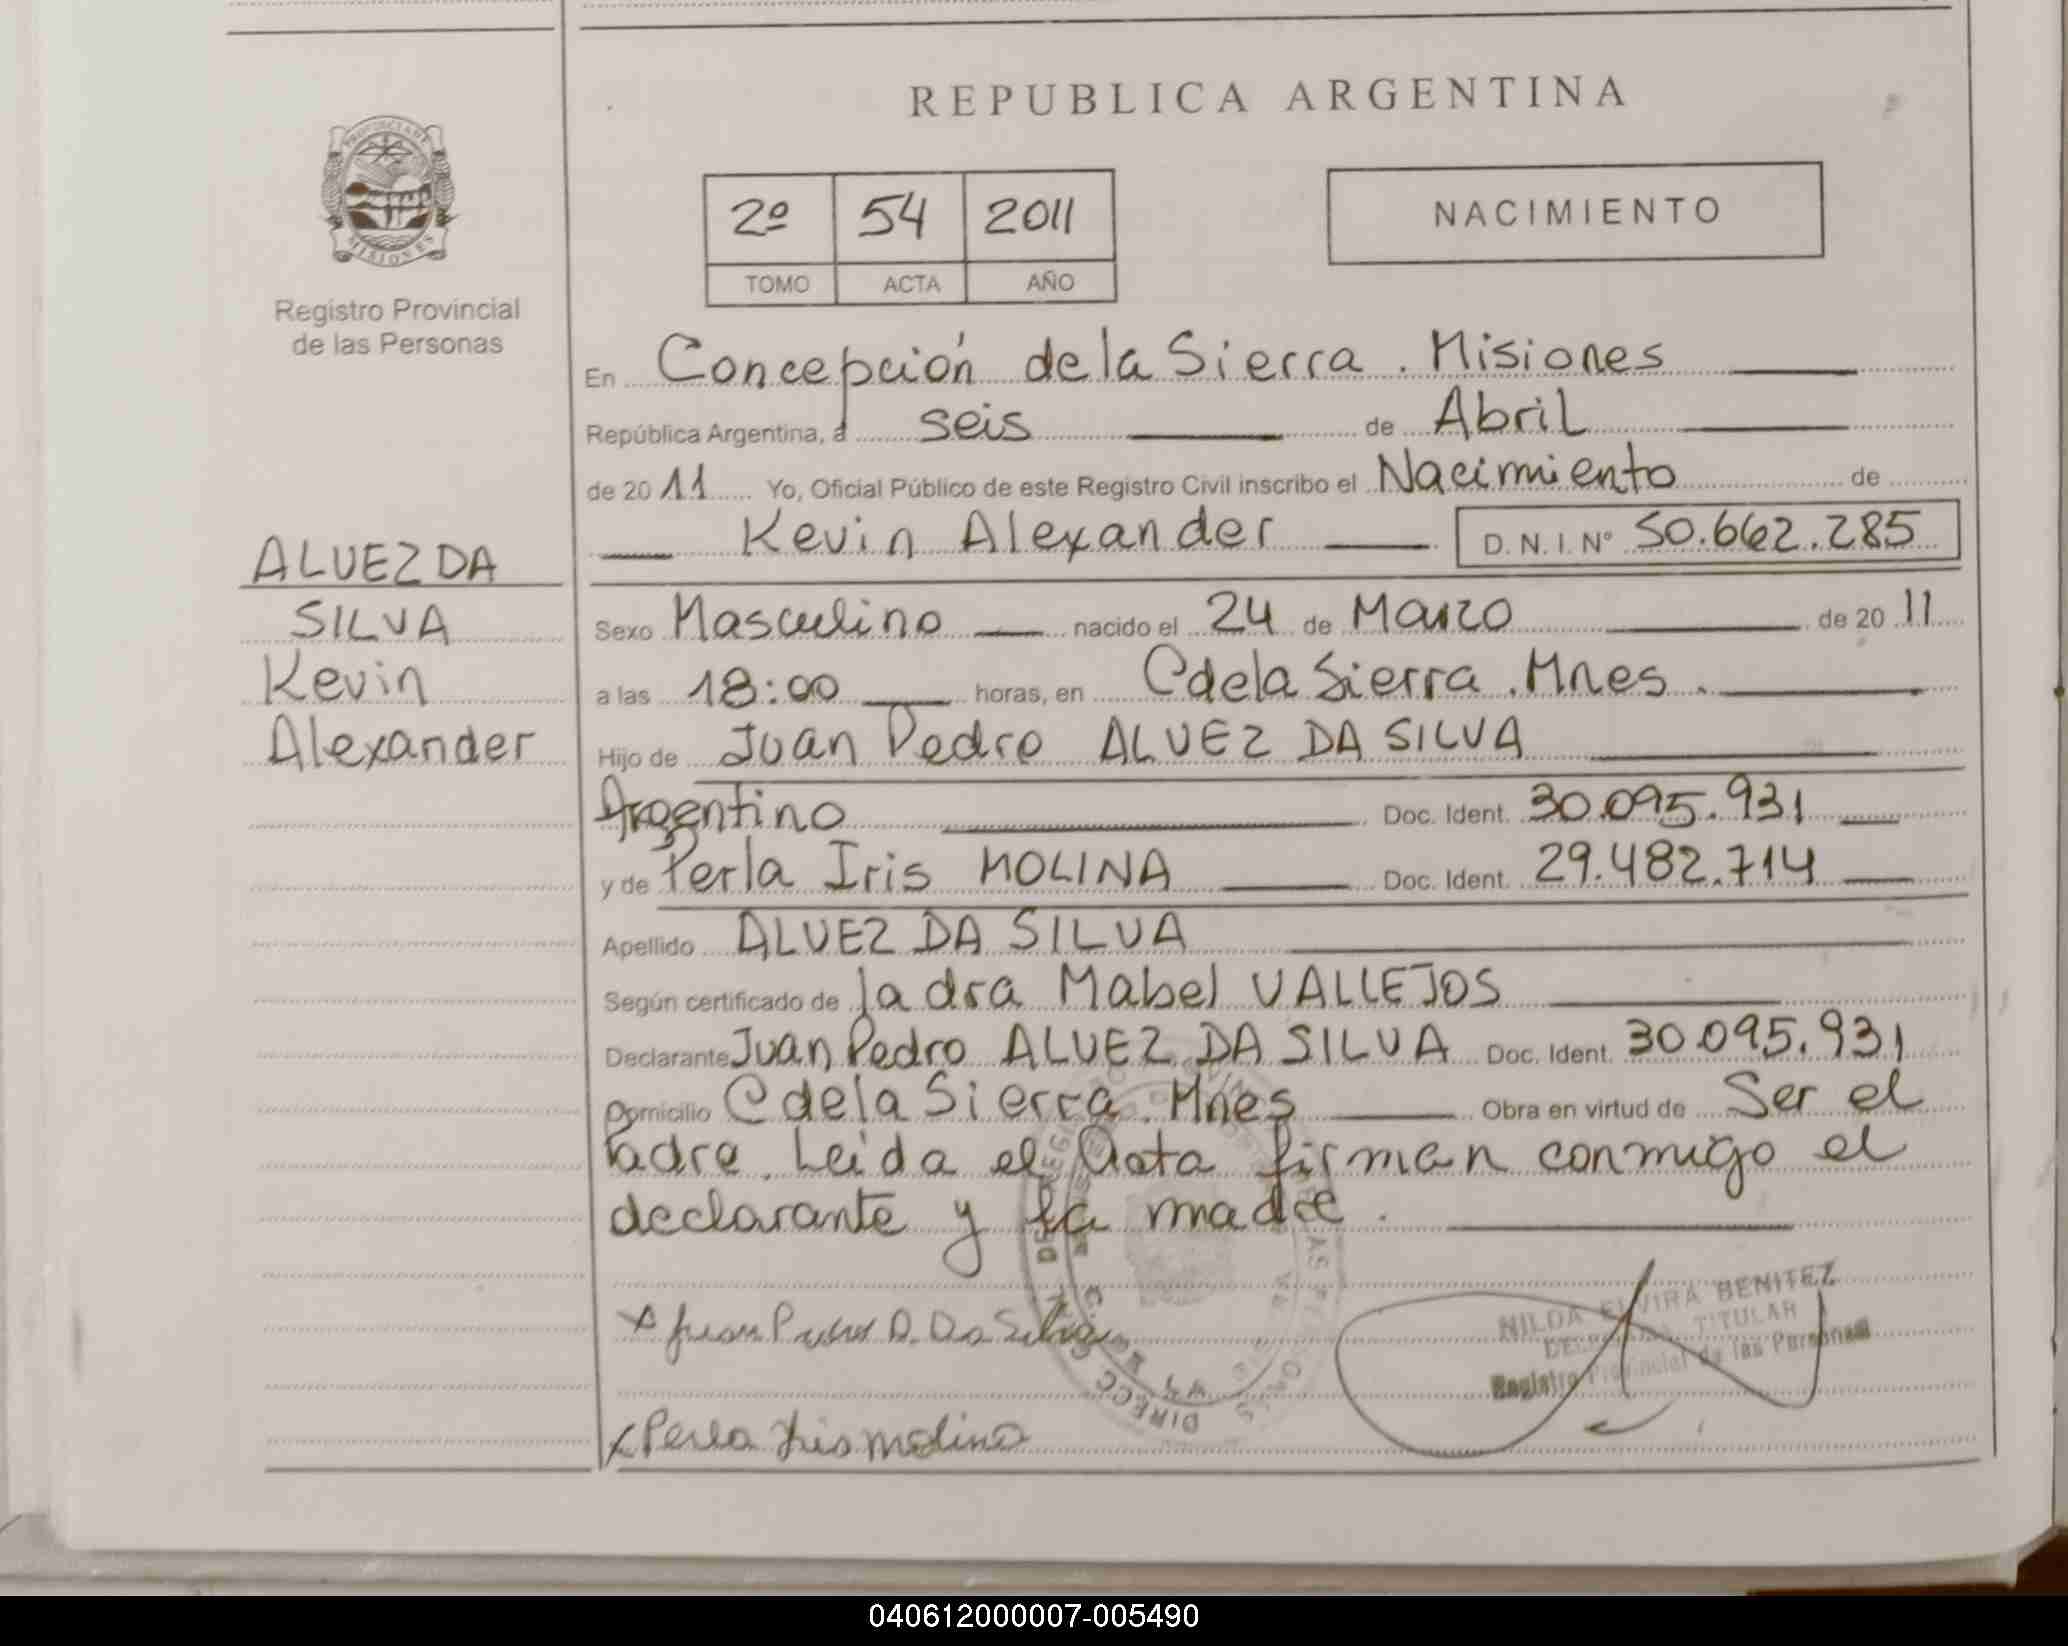 REPUBLICA ARGENTINA
PROVINCIA DE
MISIONES
Registro Provincial
de las Personas
2º 54 2011
TOMO ACTA AÑO
NACIMIENTO
ALVEZ DA
SILVA
Kevin
Alexander
En Concepción de la Sierra . Misiones
República Argentina, a seis de Abril
de 2011 Yo, Oficial Público de este Registro Civil inscribo el Nacimiento de
Kevin Alexander D.N.I. Nº 50.662.285
Sexo Masculino nacido el 24 de Marzo de 2011
a las 18:00 horas, en C de la Sierra . Mnes .
Hijo de Juan Pedro ALVEZ DA SILVA
Argentino Doc. Ident. 30.095.931
y de Perla Iris MOLINA Doc. Ident. 29.482.714
Apellido ALVEZ DA SILVA
Según certificado de la dra Mabel VALLEJOS
Declarante Juan Pedro ALVEZ DA SILVA Doc. Ident. 30.095.931
Domicilio C de la Sierra . Mnes Obra en virtud de Ser el
Padre. Leida el Acta firman conmigo el
declarante y la madre .
NILDA ELVIRA BENITEZ
DELEGADA TITULAR
Registro Provincial de las Personas
x Juan Pedro A. Da Silva
x Perla Iris molina
040612000007-005490